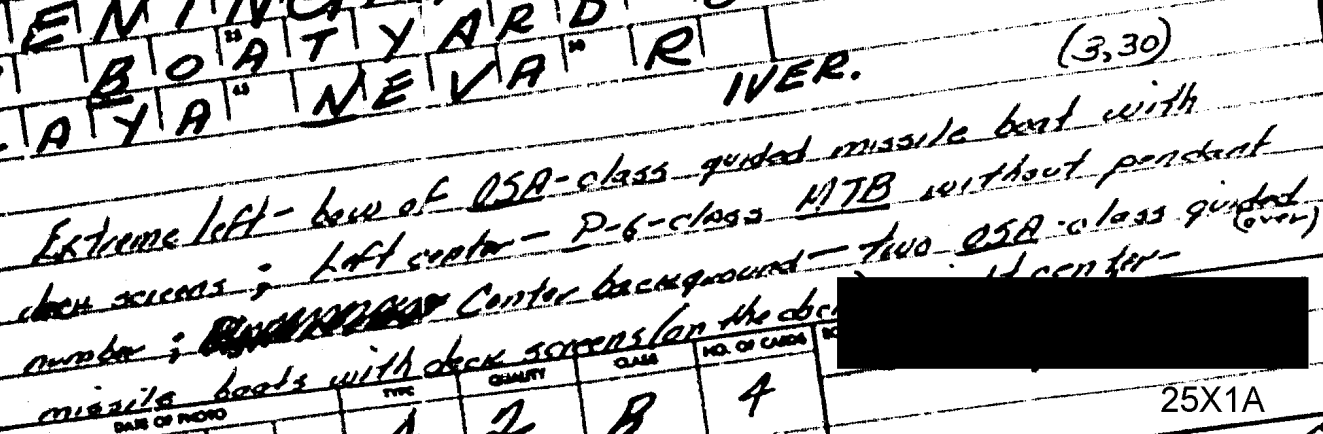 ENING
BOATYARD
AYA NEVA RIVER. (3,30)
Extreme left- bow of OSA-class guided missile boat with
deck screens; Left center- P-6-class MTB without pendant
number; Center background- two OSA-class guided
(over)
missile boats with deck screens/on the center-
DATE OF PHOTO TYPE QUALITY CLASS NO. OF CARDS
2 B 4
25X1A